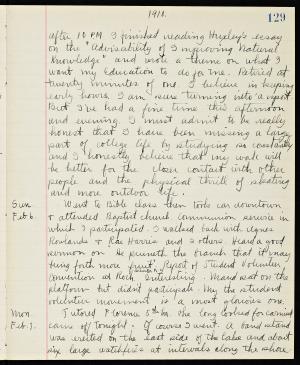 1911.
129
after 10 P.M. I finished reading Huxley's essay
on the "Advisability of Improving Natural
Knowledge" and wrote a theme on what I
want my education to do for me. Retired at
twenty minutes of one. I believe in keeping
early hours. I am sure turning into a
But I've had a fine time this afternoon
and evening. I must admit to be really
honest that I have been missing a large
part of college life by studying so constantly
and I honestly believe that my work will
be better for the closer contact with other
people and the physical thrill of skating
and more outdoor life.
Sun. Went to Bible class then took car downtown
Feb 6. & attended Baptist church Communion service in
which I participated. I walked back with Agnes
Rowlands & Rae Harris and 2 others. Heard a good
sermon on He pruneth the branch that it may
bring forth more fruit. Report of Student Volunteer
Convention at Roch. interesting. I sat on the
platform but didn't participate. My the student
volunteer movement is a most glorious one.
Mon. Tutored Florence 5th hr. She long looked for carnival
Feb. 7. came off tonight. Of course I went. A band stand
was erected on the east side of the lake and about
six large watchfires at intervals along the shore.